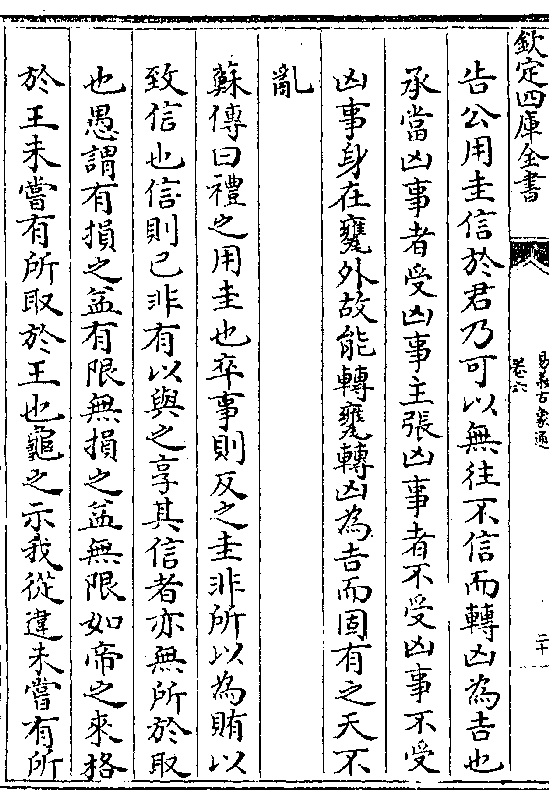 欽定四庫全書
易義古象通
卷六
二十
告公用圭信於君乃可以無往不信而轉凶為吉也
承當凶事者受凶事主張凶事者不受凶事不受
凶事身在甕外故能轉甕轉凶為吉而固有之天不
亂
蘇傳曰禮之用圭也卒事則反之圭非所以為賄以
致信也信則已非有以與之享其信者亦無所於取
也愚謂有損之益有限無損之益無限如帝之來格
於王未嘗有所取於王也龜之示我從違未嘗有所